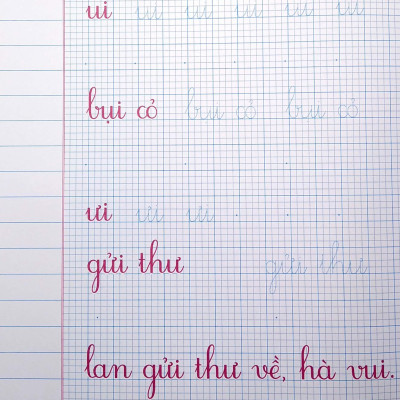 ui ui ui ui ui ui
bụi cỏ bụi cỏ bụi cỏ
ưi ưi ưi
gửi thư gửi thư
lan gửi thư về, hà vui.